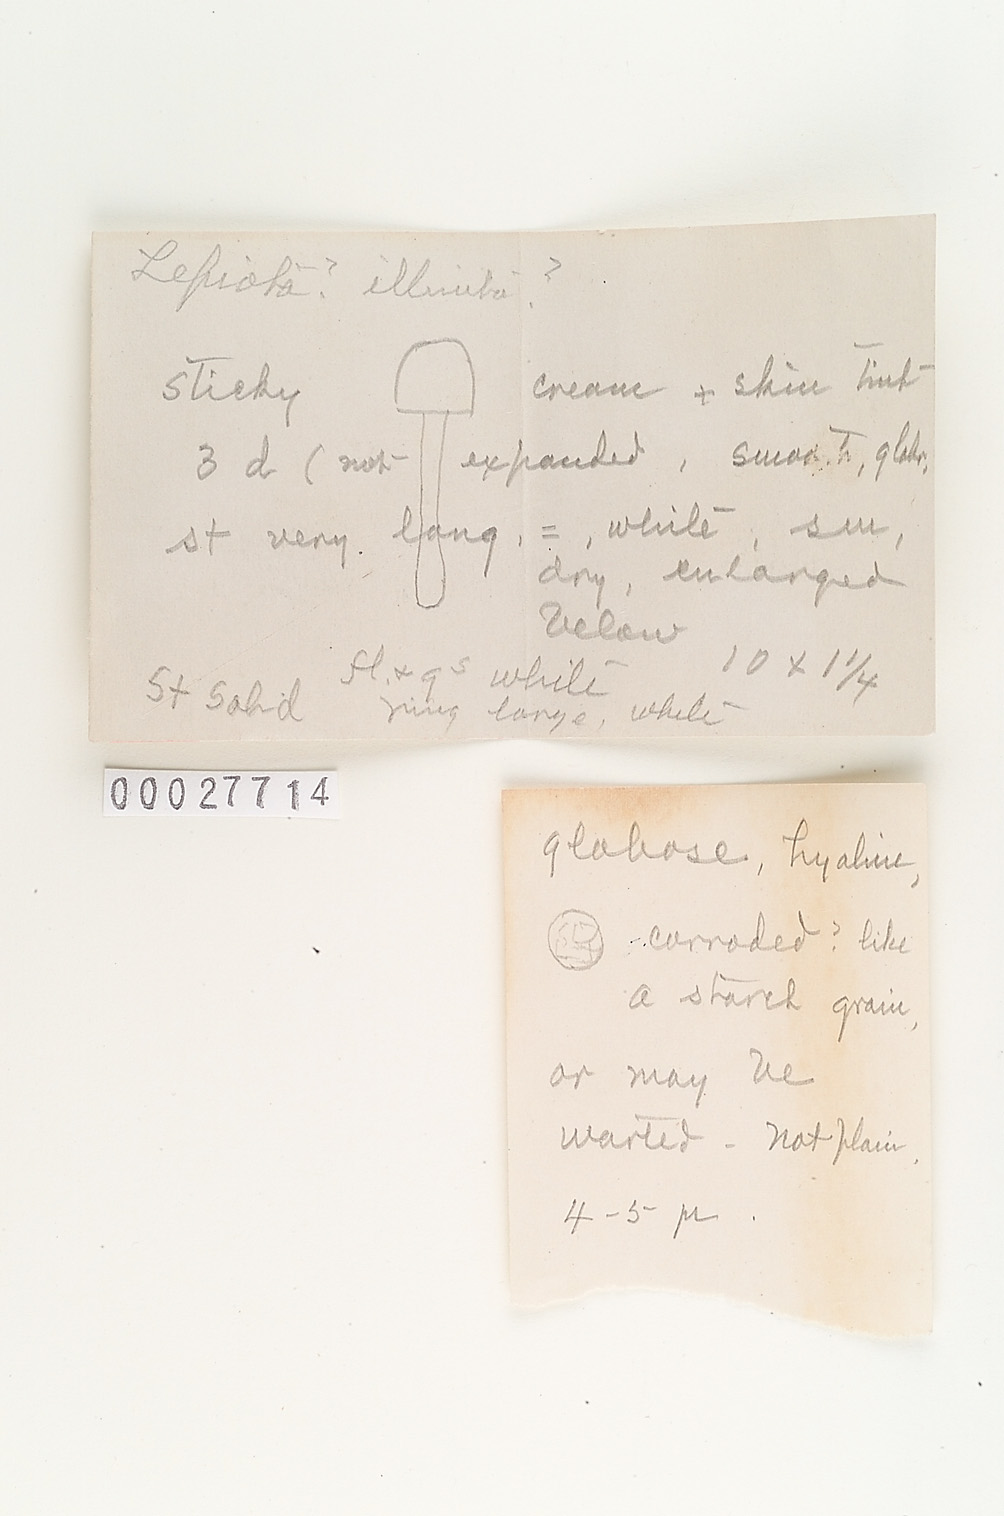 Lepiota? illinita?
sticky cream + skin tint
3 d (not expanded, smooth, glabr.
st very long, =, white, sm,
dry, enlarged
below
10 x 1 1/4
St solid fl. + gs white
ring large, white
00027714
globose, hyaline,
corroded? like
a starch grain,
or may be
warted - not plain.
4-5 µ.